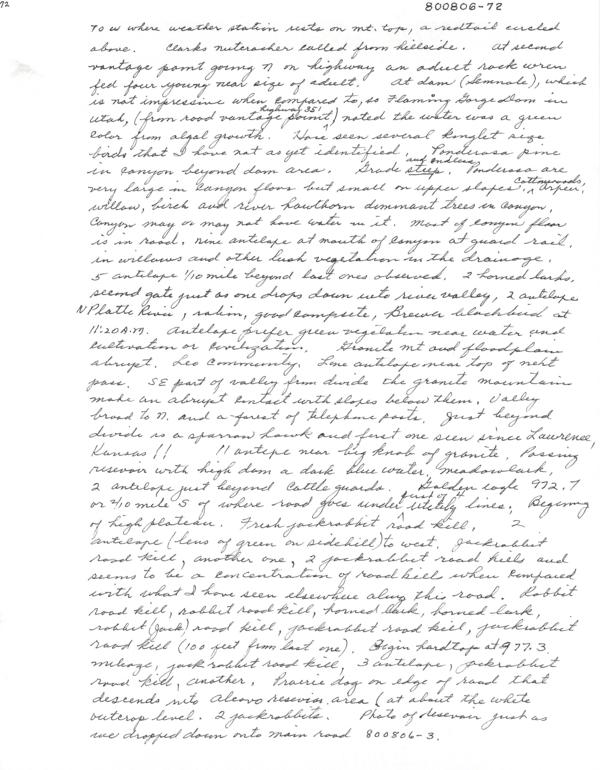 72
800806-72
To W where weather station rests on mt. top, a redtail circled
above. Clarks nutcracker called from hillside. At second
vantage point going N on highway an adult rock wren
fed four young near size of adult. At dam (Seminole), which
is not impressive when compared to, so Flaming Gorge Dam in
Utah, (from road vantage point) noted the water was a green
Highway 351
color from algal growth. Have seen several kinglet size
birds that I have not as yet identified. Ponderosa pine
in canyon beyond dam area. Grade steep. Ponderosa are
and endless
very large in canyon floor but small on upper slopes. Cottonwoods, Aspen,
willow, birch and river hawthorn dominant trees in canyon.
Canyon may or may not have water in it. Most of canyon floor
is in road. Nine antelope at mouth of canyon at guard rail.
in willows and other lush vegetation in the drainage.
5 antelope 1/10 mile beyond last ones observed. 2 horned larks.
second gate just as one drops down into river valley, 2 antelope
N Platte River, robin, good composite, Brewer blackbird at
11:20 A.M. Antelope prefer green vegetation near water and
cultivation or civilization. Granite mt and floodplain
abrupt. Leo Community. Lone antelope near top of next
pass. SE part of valley from divide the granite mountain
make an abrupt contact with slopes below them. Valley
broad to N. and a forest of telephone posts. Just beyond
divide is a sparrow hawk and first one seen since Lawrence,
Kansas!! 11 antepe near big knob of granite. Passing
resevoir with high dam a dark blue water, meadowlark,
2 antelope just beyond cattle guards. Golden eagle 972.7
or 2/10 mile S of where road goes under first of 4 utitely lines. Begining
of high plateau. Fresh jackrabbit road kill, 2
antelope (lens of green on sidehill) to west. Jackrabbit
road kill, another one, 2 jackrabbit road kills and
seems to be a concentration of road kill when compared
with what I have seen elsewhere along this road. Rabbit
road kill, rabbit road kill, horned lark, horned lark,
rabbit (Jack) road kill, jackrabbit road kill, jackrabbit
road kill (100 feet from last one). Begin hardtop at 977.3
mileage, jack rabbit road kill, 3 antelope, jackrabbit
road kill, another. Prairie dog on edge of road that
descends into Alcova resevoir area (at about the white
outcrop level. 2 jackrabbits. Photo of resevoir just as
we dropped down onto main road 800806-3.